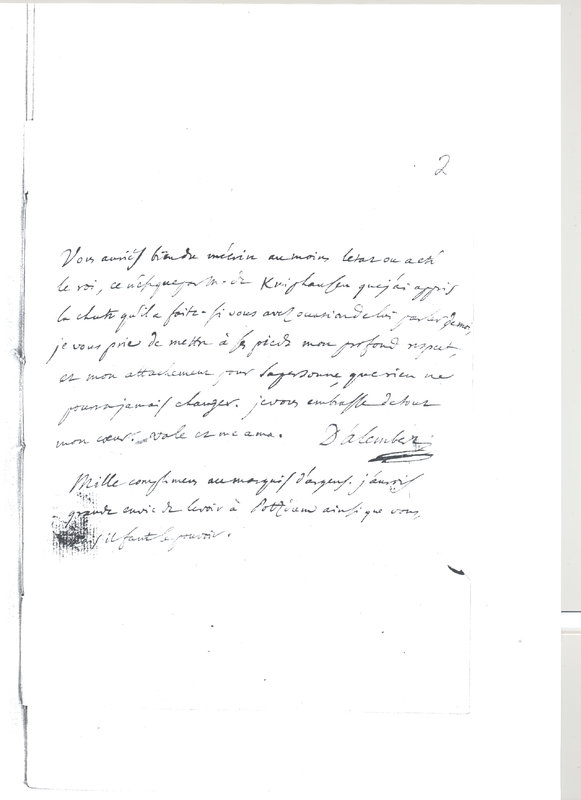 2
Vous auriés bien du m'écrire au moins l'etat ou a eté
le roi, ce n'est que par M. de Kniphausen que j'ai appris
la chute qu'il a faite. si vous avez occasion de lui parler de moi,
je vous prie de mettre à ses pieds mon profond respect,
et mon attachement pour sa personne, que rien ne
pourra jamais changer. je vous embrasse de tout
mon cœur. vale et me ama. D'alembert
Mille complimens au marquis d'argens. j'aurois
grande envie de le voir à Potzdam ainsi que vous,
mais il faut le pouvoir.